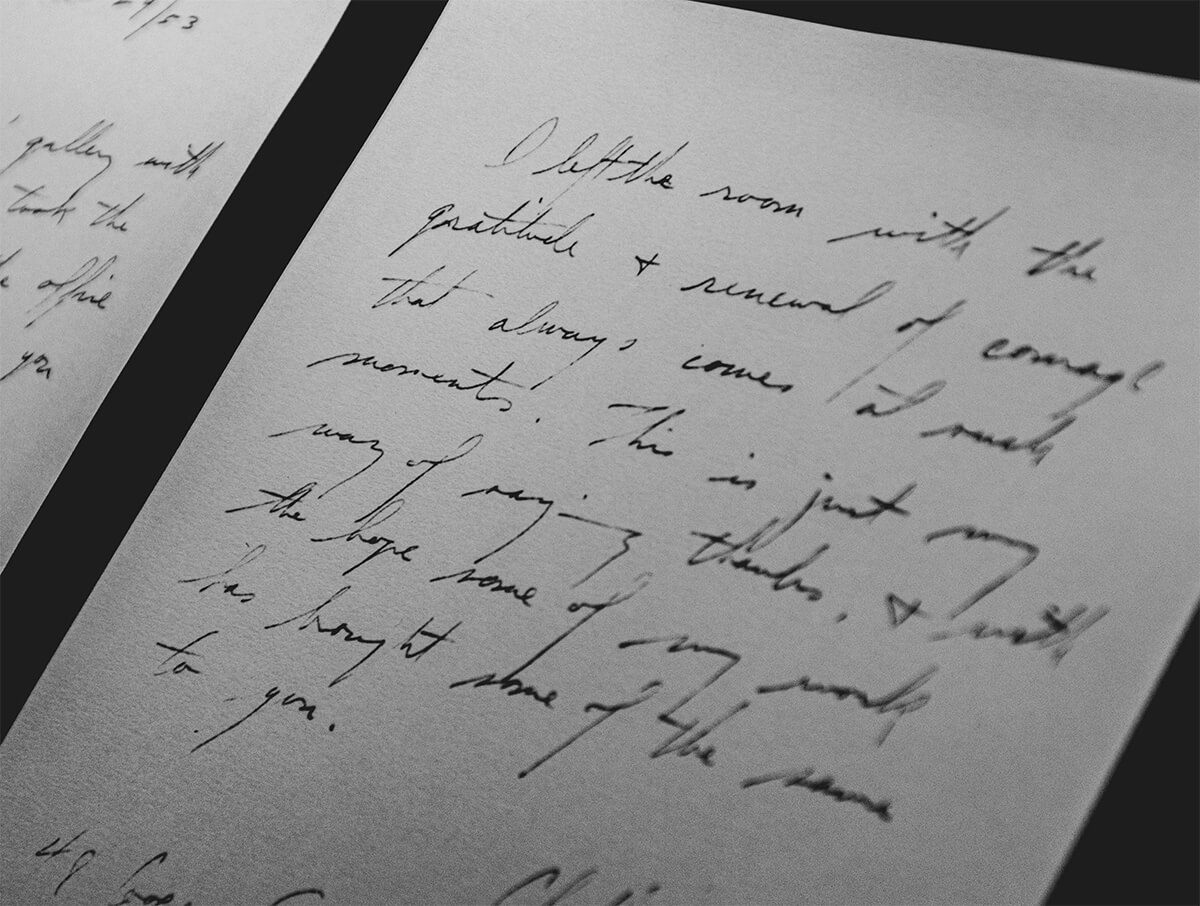 /53
gallery with
took the
office
you
I left the room with the
gratitude & renewal of courage
that always comes at such
moments. This is just my
way of saying thanks, & with
the hope some of my work
has brought some of the same
to you.
48